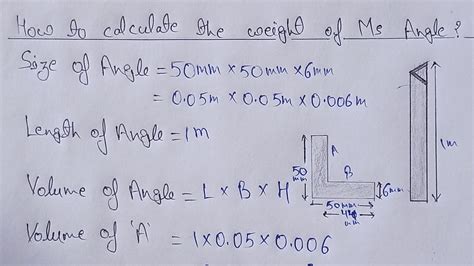 How to calculate the weight of Ms Angle?
Size of Angle = 50mm × 50mm × 6mm
= 0.05m × 0.05m × 0.006m
Length of Angle = 1m
Volume of Angle = L × B × H
Volume of 'A' = 1 × 0.05 × 0.006
A
B
50
mm
6mm
50mm
mm
1m